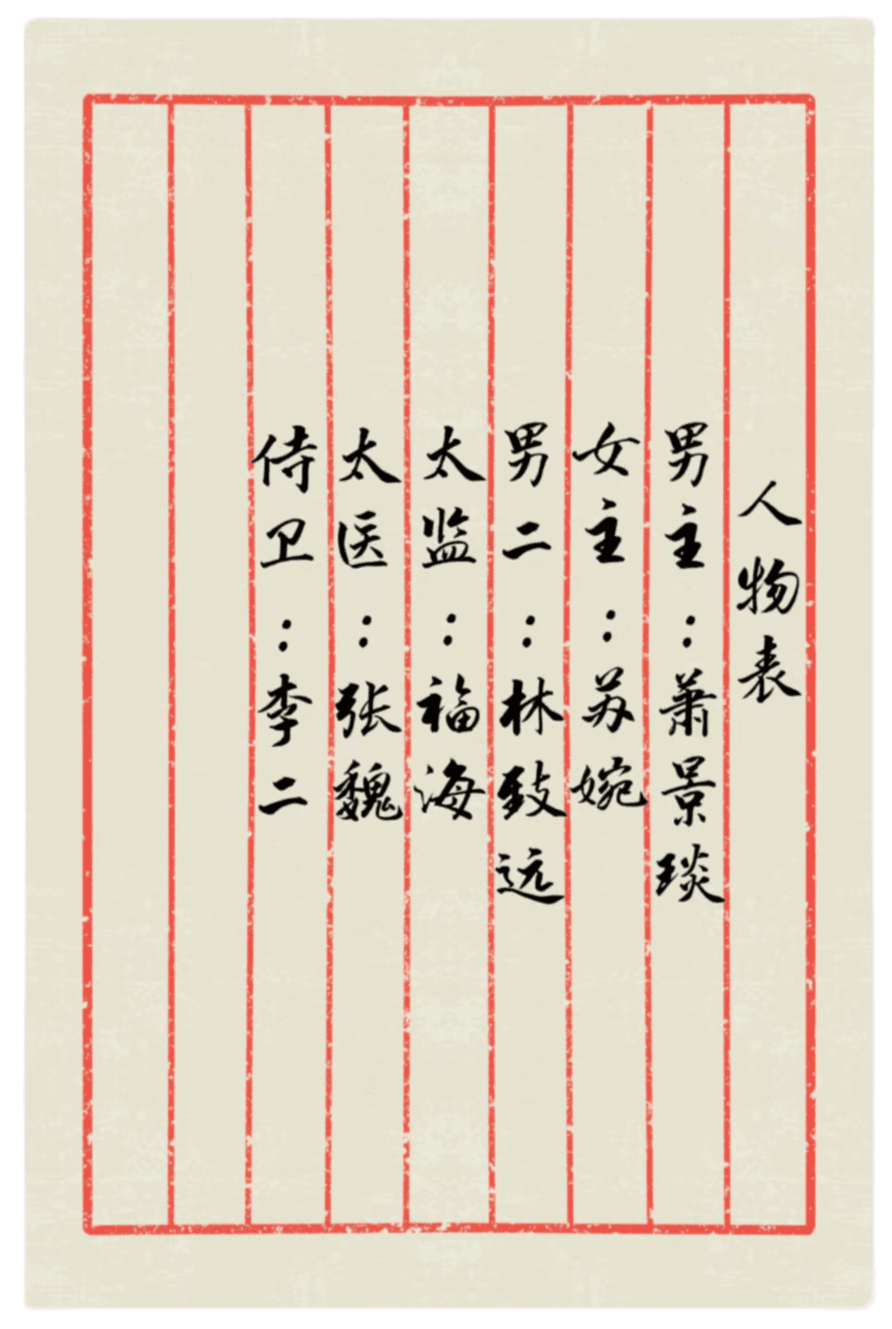 人物表
男主：萧景琰
女主：苏婉
男二：林致远
太监：福海
太医：张魏
侍卫：李二